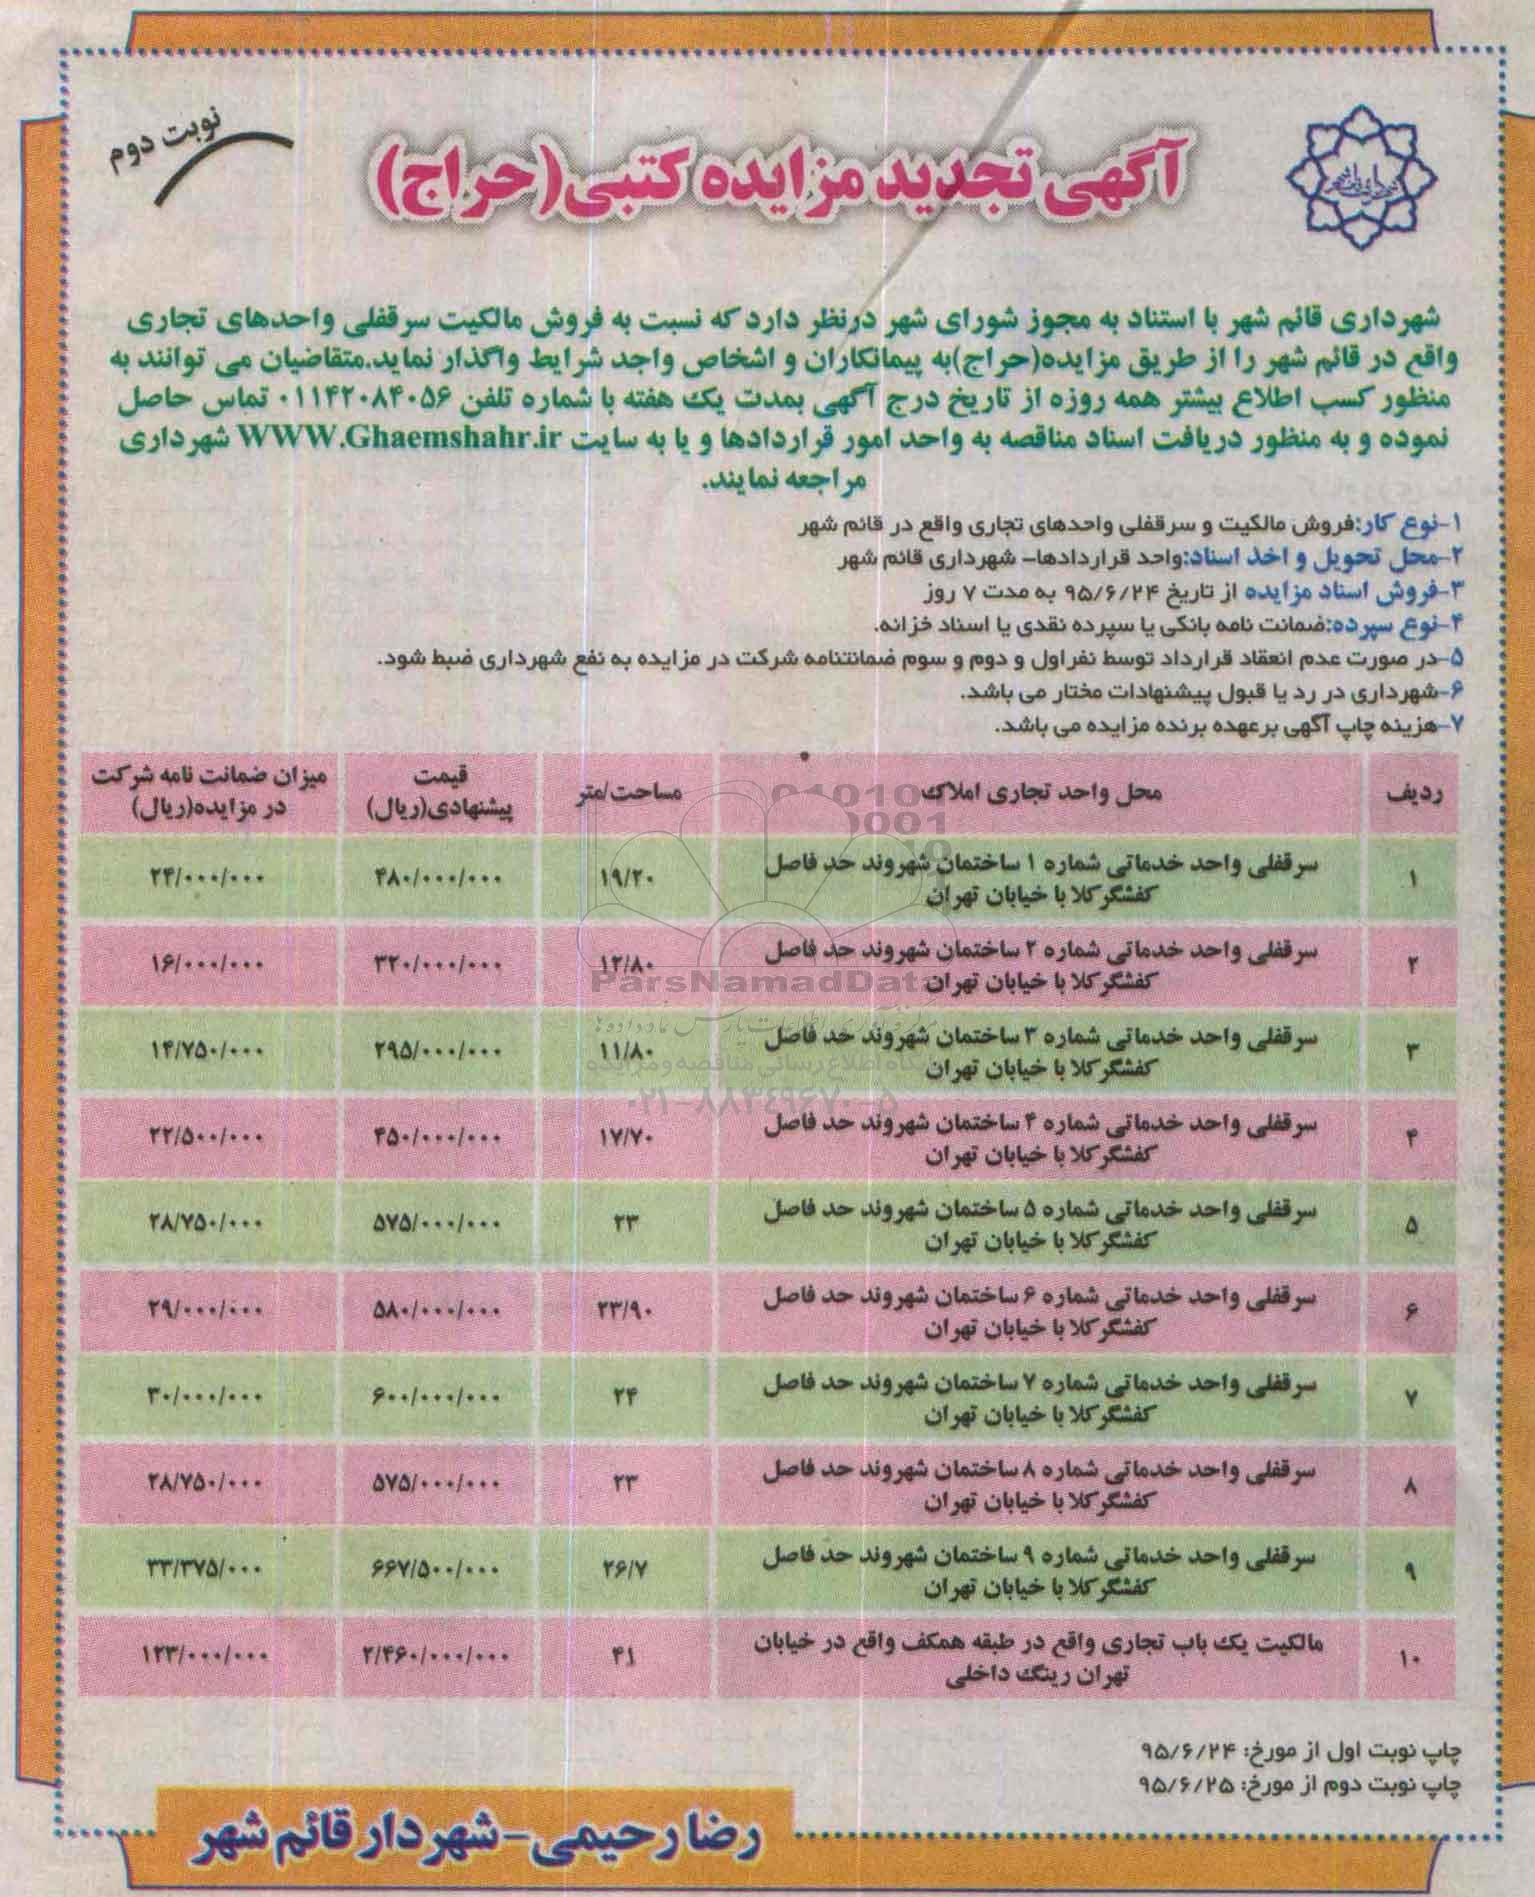 نوبت دوم
آگهی تجدید مزایده کتبی(حراج)
شهرداری قائم شهر با استناد به مجوز شورای شهر درنظر دارد که نسبت به فروش مالکیت سرقفلی واحدهای تجاری
واقع در قائم شهر را از طریق مزایده(حراج)به پیمانکاران و اشخاص واجد شرایط واگذار نماید.متقاضیان می توانند به
منظور کسب اطلاع بیشتر همه روزه از تاریخ درج آگهی بمدت یک هفته با شماره تلفن ۰۱۱۴۲۰۸۴۰۵۶ تماس حاصل
نموده و به منظور دریافت اسناد مناقصه به واحد امور قراردادها و یا به سایت WWW.Ghaemshahr.ir شهرداری
مراجعه نمایند.
۱-نوع کار:فروش مالکیت و سرقفلی واحدهای تجاری واقع در قائم شهر
۲-محل تحویل و اخذ اسناد:واحد قراردادها- شهرداری قائم شهر
۳-فروش اسناد مزایده از تاریخ ۹۵/۶/۲۴ به مدت ۷ روز
۴-نوع سپرده:ضمانت نامه بانکی یا سپرده نقدی یا اسناد خزانه.
۵-در صورت عدم انعقاد قرارداد توسط نفراول و دوم و سوم ضمانتنامه شرکت در مزایده به نفع شهرداری ضبط شود.
۶-شهرداری در رد یا قبول پیشنهادات مختار می باشد.
۷-هزینه چاپ آگهی برعهده برنده مزایده می باشد.
ردیف محل واحد تجاری املاک مساحت/متر قیمت پیشنهادی(ریال) میزان ضمانت نامه شرکت در مزایده(ریال)
۱ سرقفلی واحد خدماتی شماره ۱ ساختمان شهروند حد فاصل کفشگرکلا با خیابان تهران ۱۹/۲۰ ۴۸۰/۰۰۰/۰۰۰ ۲۴/۰۰۰/۰۰۰
۲ سرقفلی واحد خدماتی شماره ۲ ساختمان شهروند حد فاصل کفشگرکلا با خیابان تهران ۱۲/۸۰ ۳۲۰/۰۰۰/۰۰۰ ۱۶/۰۰۰/۰۰۰
۳ سرقفلی واحد خدماتی شماره ۳ ساختمان شهروند حد فاصل کفشگرکلا با خیابان تهران ۱۱/۸۰ ۲۹۵/۰۰۰/۰۰۰ ۱۴/۷۵۰/۰۰۰
۴ سرقفلی واحد خدماتی شماره ۴ ساختمان شهروند حد فاصل کفشگرکلا با خیابان تهران ۱۷/۷۰ ۴۵۰/۰۰۰/۰۰۰ ۲۲/۵۰۰/۰۰۰
۵ سرقفلی واحد خدماتی شماره ۵ ساختمان شهروند حد فاصل کفشگرکلا با خیابان تهران ۲۳ ۵۷۵/۰۰۰/۰۰۰ ۲۸/۷۵۰/۰۰۰
۶ سرقفلی واحد خدماتی شماره ۶ ساختمان شهروند حد فاصل کفشگرکلا با خیابان تهران ۲۳/۹۰ ۵۸۰/۰۰۰/۰۰۰ ۲۹/۰۰۰/۰۰۰
۷ سرقفلی واحد خدماتی شماره ۷ ساختمان شهروند حد فاصل کفشگرکلا با خیابان تهران ۲۴ ۶۰۰/۰۰۰/۰۰۰ ۳۰/۰۰۰/۰۰۰
۸ سرقفلی واحد خدماتی شماره ۸ ساختمان شهروند حد فاصل کفشگرکلا با خیابان تهران ۲۳ ۵۷۵/۰۰۰/۰۰۰ ۲۸/۷۵۰/۰۰۰
۹ سرقفلی واحد خدماتی شماره ۹ ساختمان شهروند حد فاصل کفشگرکلا با خیابان تهران ۲۶/۷ ۶۶۷/۵۰۰/۰۰۰ ۳۳/۳۷۵/۰۰۰
۱۰ مالکیت یک باب تجاری واقع در طبقه همکف واقع در خیابان تهران رینگ داخلی ۴۱ ۲/۴۶۰/۰۰۰/۰۰۰ ۱۲۳/۰۰۰/۰۰۰
ParsNamadData
۰۲۱-۸۸۳۴۹۶۷۰-۵
چاپ نوبت اول از مورخ: ۹۵/۶/۲۴
چاپ نوبت دوم از مورخ: ۹۵/۶/۲۵
رضا رحیمی-شهردار قائم شهر